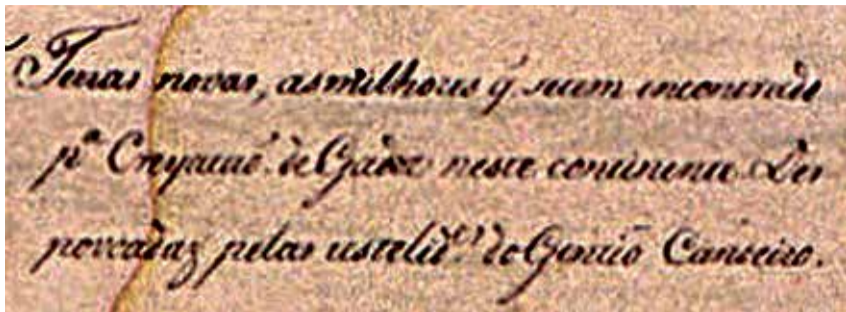 Terras novas, as milhores q' setem encontrado
pª Creyacaõ de Gados neste continente Des
povoadaz pelas ustelid.es do Gentio Canoeiro.